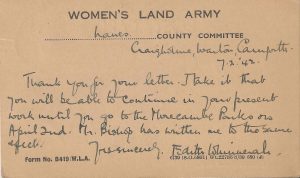 WOMEN'S LAND ARMY
Lancs. COUNTY COMMITTEE
Craigholme, Warton, Carnforth
7.2.43.
Thank you for your letter. I take it that
you will be able to continue in your present
work until you go to the Morecambe Parks on
April 2nd. Mr. Bishop has written me to the same
effect.
Yours sincerely, Edith
Form No. B419 W.L.A.